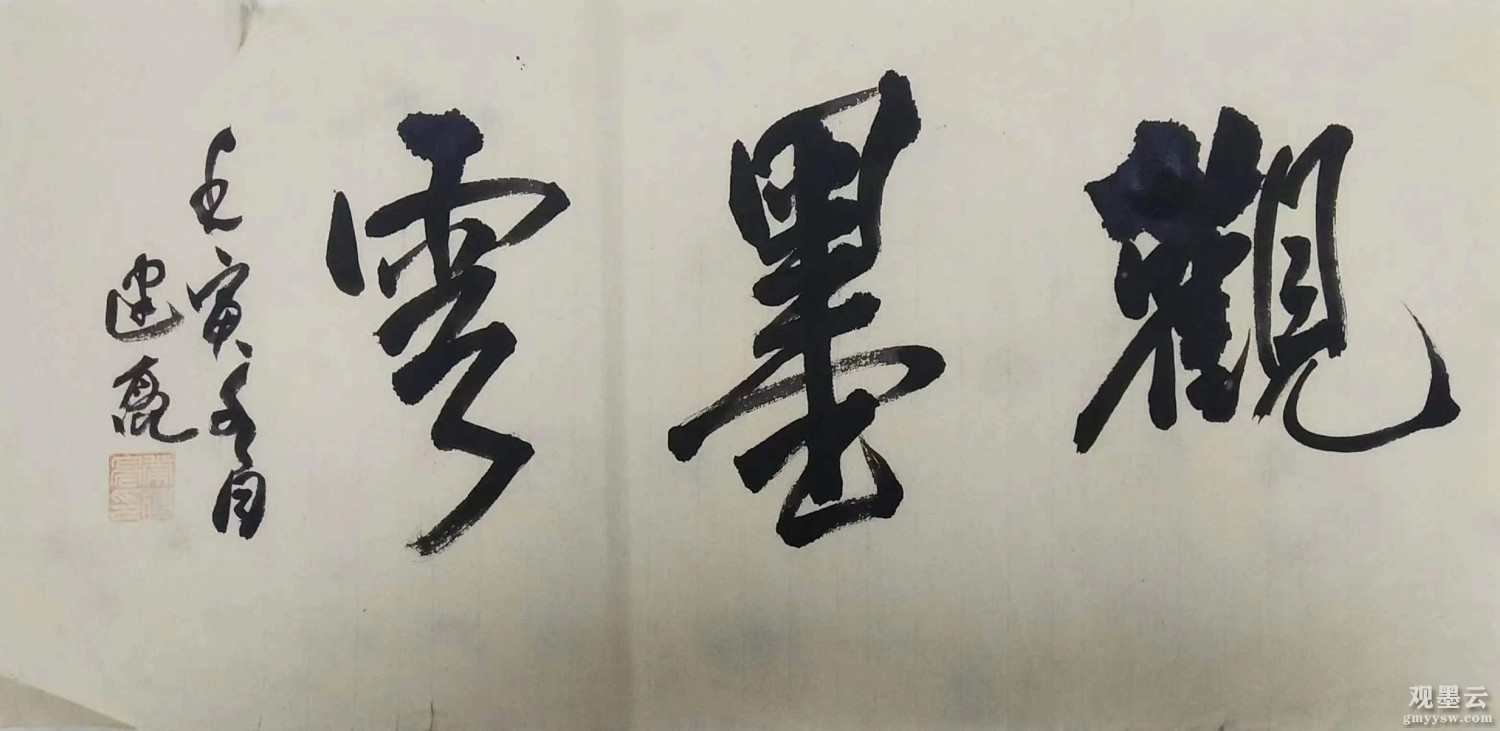 觀墨雲
壬寅冬月
建磊
观墨云
gmyysw.com